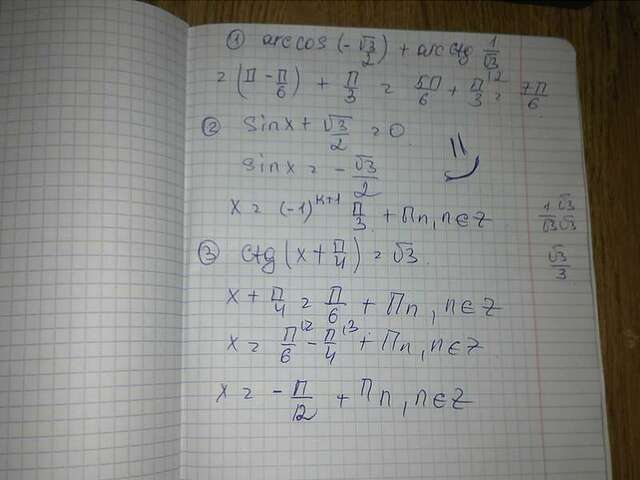 ① arccos(-√3/2) + arcctg 1/√3
= (π - π/6) + π/3 = 5π/6 + π/3 \2 = 7π/6
② sinx + √3/2 = 0
sinx = - √3/2
x = (-1)ᵏ⁺¹ π/3 + πn, n∈Z
③ ctg(x + π/4) = √3
x + π/4 = π/6 + πn, n∈Z
x = π/6 \2 - π/4 \3 + πn, n∈Z
x = - π/12 + πn, n∈Z
1/√3 √3/√3
√3/3